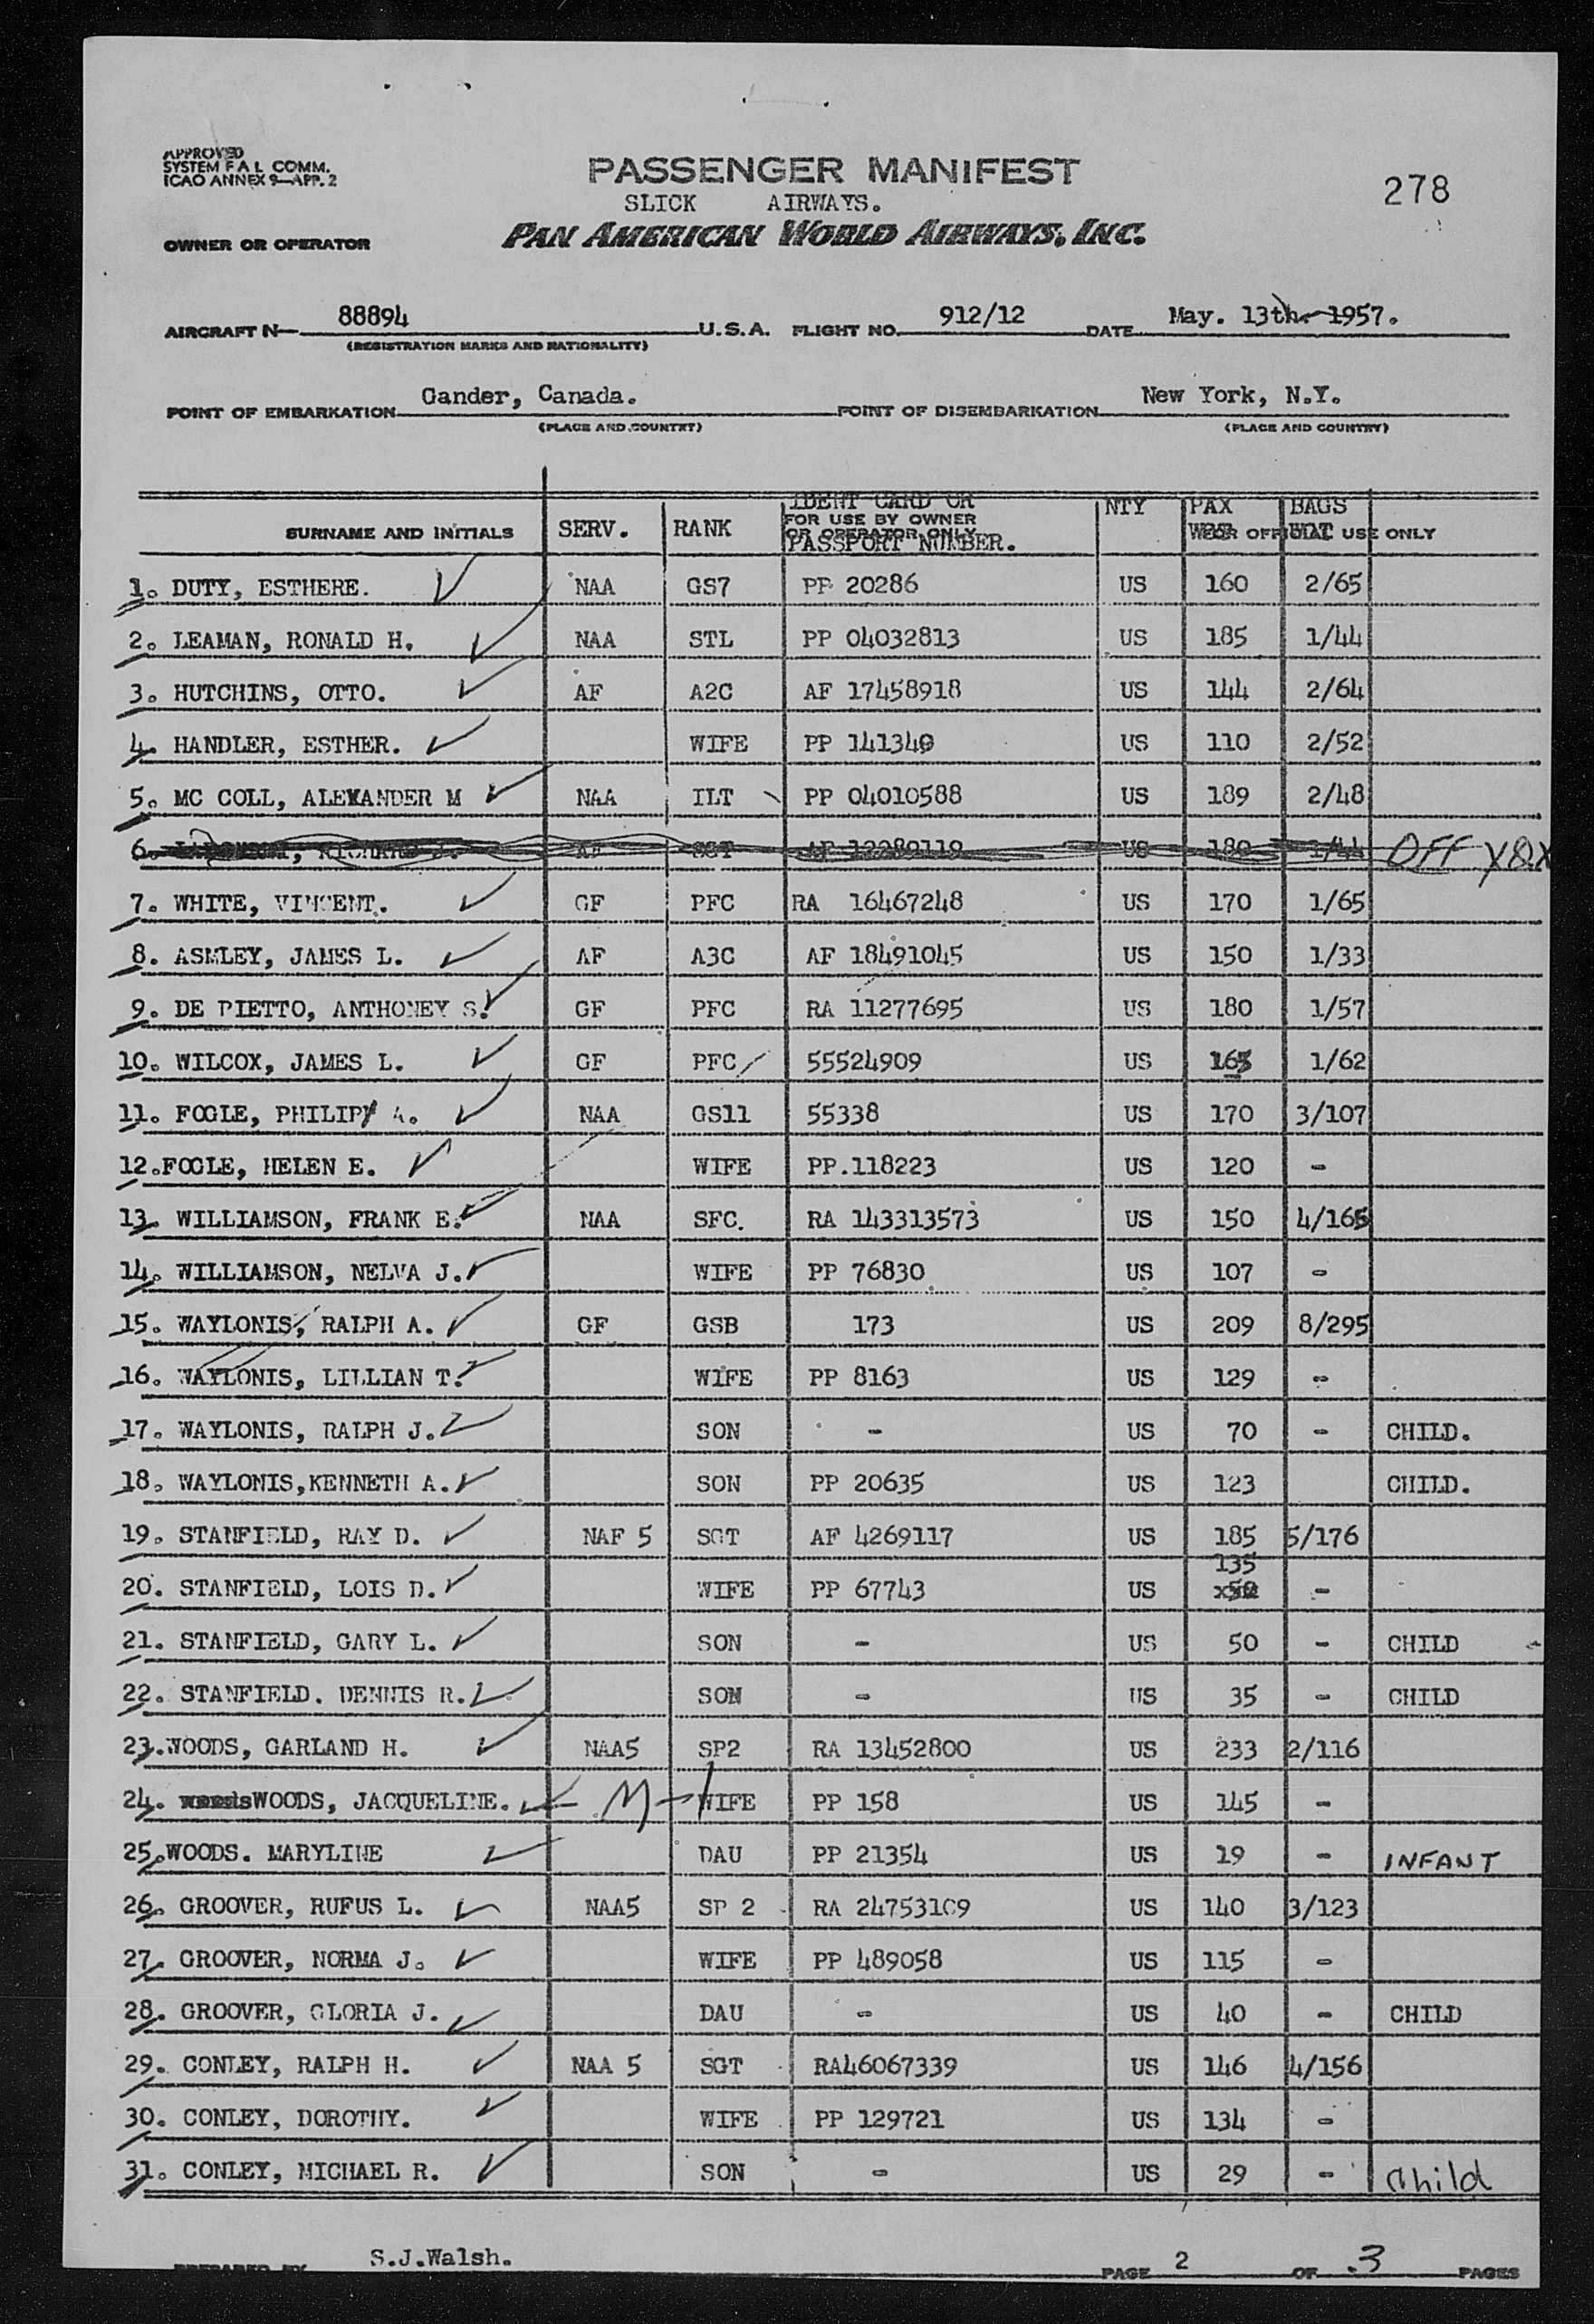 APPROVED
SYSTEM F A L COMM.
ICAO ANNEX 9—APP. 2
PASSENGER MANIFEST
278
SLICK AIRWAYS.
OWNER OR OPERATOR PAN AMERICAN WORLD AIRWAYS, INC.
AIRCRAFT N— 88894 U.S.A. FLIGHT NO. 912/12 DATE May. 13th. 1957.
(REGISTRATION MARKS AND NATIONALITY)
POINT OF EMBARKATION Gander, Canada. POINT OF DISEMBARKATION New York, N.Y.
(PLACE AND COUNTRY) (PLACE AND COUNTRY)
IDENT CARD OR NTY PAX BAGS
SURNAME AND INITIALS SERV. RANK FOR USE BY OWNER OR OPERATOR ONLY FOR OFFICIAL USE ONLY
PASSPORT NUMBER.
1. DUTY, ESTHERE. NAA GS7 PP 20286 US 160 2/65
2. LEAMAN, RONALD H. NAA STL PP 04032813 US 185 1/44
3. HUTCHINS, OTTO. AF A2C AF 17458918 US 144 2/64
4. HANDLER, ESTHER. WIFE PP 141349 US 110 2/52
5. MC COLL, ALEXANDER M NAA ILT PP 04010588 US 189 2/48
6. RICHARD J. AF SGT AF US 180 1/44 OFF
7. WHITE, VINCENT. GF PFC RA 16467248 US 170 1/65
8. ASMLEY, JAMES L. AF A3C AF 18491045 US 150 1/33
9. DE PIETTO, ANTHONEY S. GF PFC RA 11277695 US 180 1/57
10. WILCOX, JAMES L. GF PFC 55524909 US 165 1/62
11. FOGLE, PHILIP A. NAA GS11 55338 US 170 3/107
12. FOGLE, HELEN E. WIFE PP.118223 US 120 -
13. WILLIAMSON, FRANK E. NAA SFC. RA 143313573 US 150 4/165
14. WILLIAMSON, NELVA J. WIFE PP 76830 US 107 -
15. WAYLONIS, RALPH A. GF GSB 173 US 209 8/295
16. WAYLONIS, LILLIAN T. WIFE PP 8163 US 129 -
17. WAYLONIS, RALPH J. SON - US 70 - CHILD.
18. WAYLONIS,KENNETH A. SON PP 20635 US 123 CHILD.
19. STANFIELD, RAY D. NAF 5 SGT AF 4269117 US 185 5/176
135
20. STANFIELD, LOIS D. WIFE PP 67743 US -
21. STANFIELD, GARY L. SON - US 50 - CHILD
22. STANFIELD. DENNIS R. SON - US 35 - CHILD
23.WOODS, GARLAND H. NAA5 SP2 RA 13452800 US 233 2/116
24. WOODS, JACQUELINE. M WIFE PP 158 US 145 -
25.WOODS. MARYLINE DAU PP 21354 US 19 - INFANT
26. GROOVER, RUFUS L. NAA5 SP 2 RA 24753109 US 140 3/123
27. GROOVER, NORMA J. WIFE PP 489058 US 115 -
28. GROOVER, GLORIA J. DAU - US 40 - CHILD
29. CONLEY, RALPH H. NAA 5 SGT RA46067339 US 146 4/156
30. CONLEY, DOROTHY. WIFE PP 129721 US 134 -
31. CONLEY, MICHAEL R. SON - US 29 - Child
PREPARED BY S.J.Walsh. PAGE 2 OF 3 PAGES